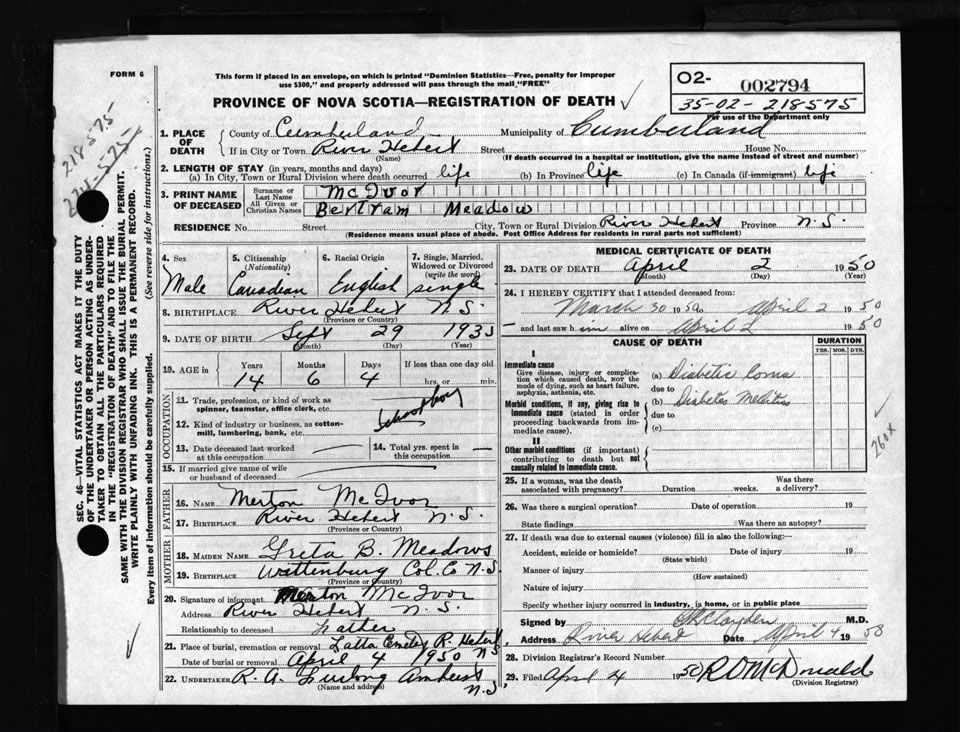 FORM 6
This form if placed in an envelope, on which is printed "Dominion Statistics—Free, penalty for improper
use $300," and properly addressed will pass through the mail "FREE"
O2- 002794
35-02-218575
For use of the Department only
PROVINCE OF NOVA SCOTIA—REGISTRATION OF DEATH
218575
1. PLACE OF DEATH County of Cumberland Municipality of Cumberland
If in City or Town River Hebert Street House No.
(Name) (If death occurred in a hospital or institution, give the name instead of street and number)
2. LENGTH OF STAY (in years, months and days)
(a) In City, Town or Rural Division where death occurred life (b) In Province life (c) In Canada (if immigrant) life
3. PRINT NAME OF DECEASED Surname or Last Name McIvor
All Given or Christian Names Bertram Meadow
RESIDENCE No. Street City, Town or Rural Division River Hebert Province N.S.
(Residence means usual place of abode. Post Office Address for residents in rural parts not sufficient)
4. Sex 5. Citizenship (Nationality) 6. Racial Origin 7. Single, Married, Widowed or Divorced (write the word)
Male Canadian English single
8. BIRTHPLACE River Hebert N.S.
(Province or Country)
9. DATE OF BIRTH Sept 29 1935
(Month) (Day) (Year)
10. AGE in Years Months Days If less than one day old
14 6 4 hrs. or min.
OCCUPATION
11. Trade, profession, or kind of work as spinner, teamster, office clerk, etc. schoolboy
12. Kind of industry or business, as cotton-mill, lumbering, bank, etc.
13. Date deceased last worked at this occupation 14. Total yrs. spent in this occupation
15. If married give name of wife or husband of deceased
FATHER
16. NAME Merton McIvor
17. BIRTHPLACE River Hebert N.S.
(Province or Country)
MOTHER
18. MAIDEN NAME Greta B. Meadows
19. BIRTHPLACE Wittenburg Col. Co N.S.
(Province or Country)
20. Signature of informant Merton McIvor
Address River Hebert N.S.
Relationship to deceased Father
21. Place of burial, cremation or removal Latta Cemetry R. Hebert NS
Date of burial or removal April 4 1950
22. UNDERTAKER R. A. Furlong Amherst N.S.
(Name and address)
MEDICAL CERTIFICATE OF DEATH
23. DATE OF DEATH April 2 1950
(Month) (Day)
24. I HEREBY CERTIFY that I attended deceased from:
March 30 1950 April 2 1950
and last saw him alive on April 2 1950
CAUSE OF DEATH DURATION
YRS. MOS. DYS.
I
Immediate cause
Give disease, injury or complication which caused death, NOT the mode of dying, such as heart failure, asphyxia, asthenia, etc.
(a) Diabetic Coma
due to
Morbid conditions, if any, giving rise to immediate cause (stated in order proceeding backwards from immediate cause).
(b) Diabetes Mellitus
due to
(c)
260X
II
Other morbid conditions (if important) contributing to death but not causally related to immediate cause.
25. If a woman, was the death associated with pregnancy? Duration weeks. Was there a delivery?
26. Was there a surgical operation? Date of operation 19
State findings Was there an autopsy?
27. If death was due to external causes (violence) fill in also the following:—
Accident, suicide or homicide? Date of injury 19
(State which)
Manner of injury
(How sustained)
Nature of injury
Specify whether injury occurred in industry, in home, or in public place
Signed by M.D.
Address River Hebert Date April 4 19
28. Division Registrar's Record Number
29. Filed April 4 1950 R D McDonald
(Division Registrar)
SEC. 46—VITAL STATISTICS ACT MAKES IT THE DUTY
OF THE UNDERTAKER OR PERSON ACTING AS UNDER-
TAKER TO OBTAIN ALL THE PARTICULARS REQUIRED
IN THE "REGISTRATION OF DEATH" AND TO FILE THE
SAME WITH THE DIVISION REGISTRAR WHO SHALL ISSUE THE BURIAL PERMIT.
WRITE PLAINLY WITH UNFADING INK. THIS IS A PERMANENT RECORD.
Every item of information should be carefully supplied. (See reverse side for instructions.)